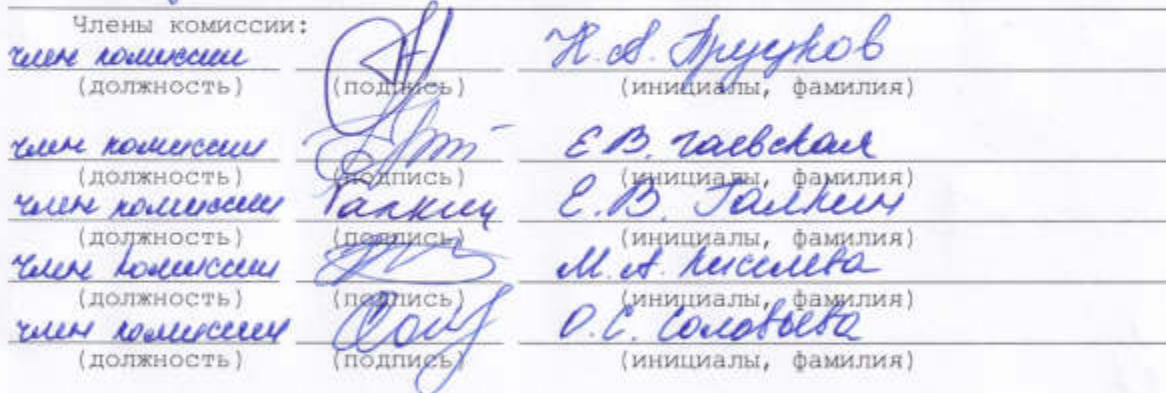 Члены комиссии:
член комиссии Н.А. Прудков
(должность) (подпись) (инициалы, фамилия)
член комиссии Е.В. Гаевская
(должность) (подпись) (инициалы, фамилия)
член комиссии Галкин Е.В. Галкин
(должность) (подпись) (инициалы, фамилия)
член комиссии М.А. Киселева
(должность) (подпись) (инициалы, фамилия)
член комиссии О.С. Соловьева
(должность) (подпись) (инициалы, фамилия)